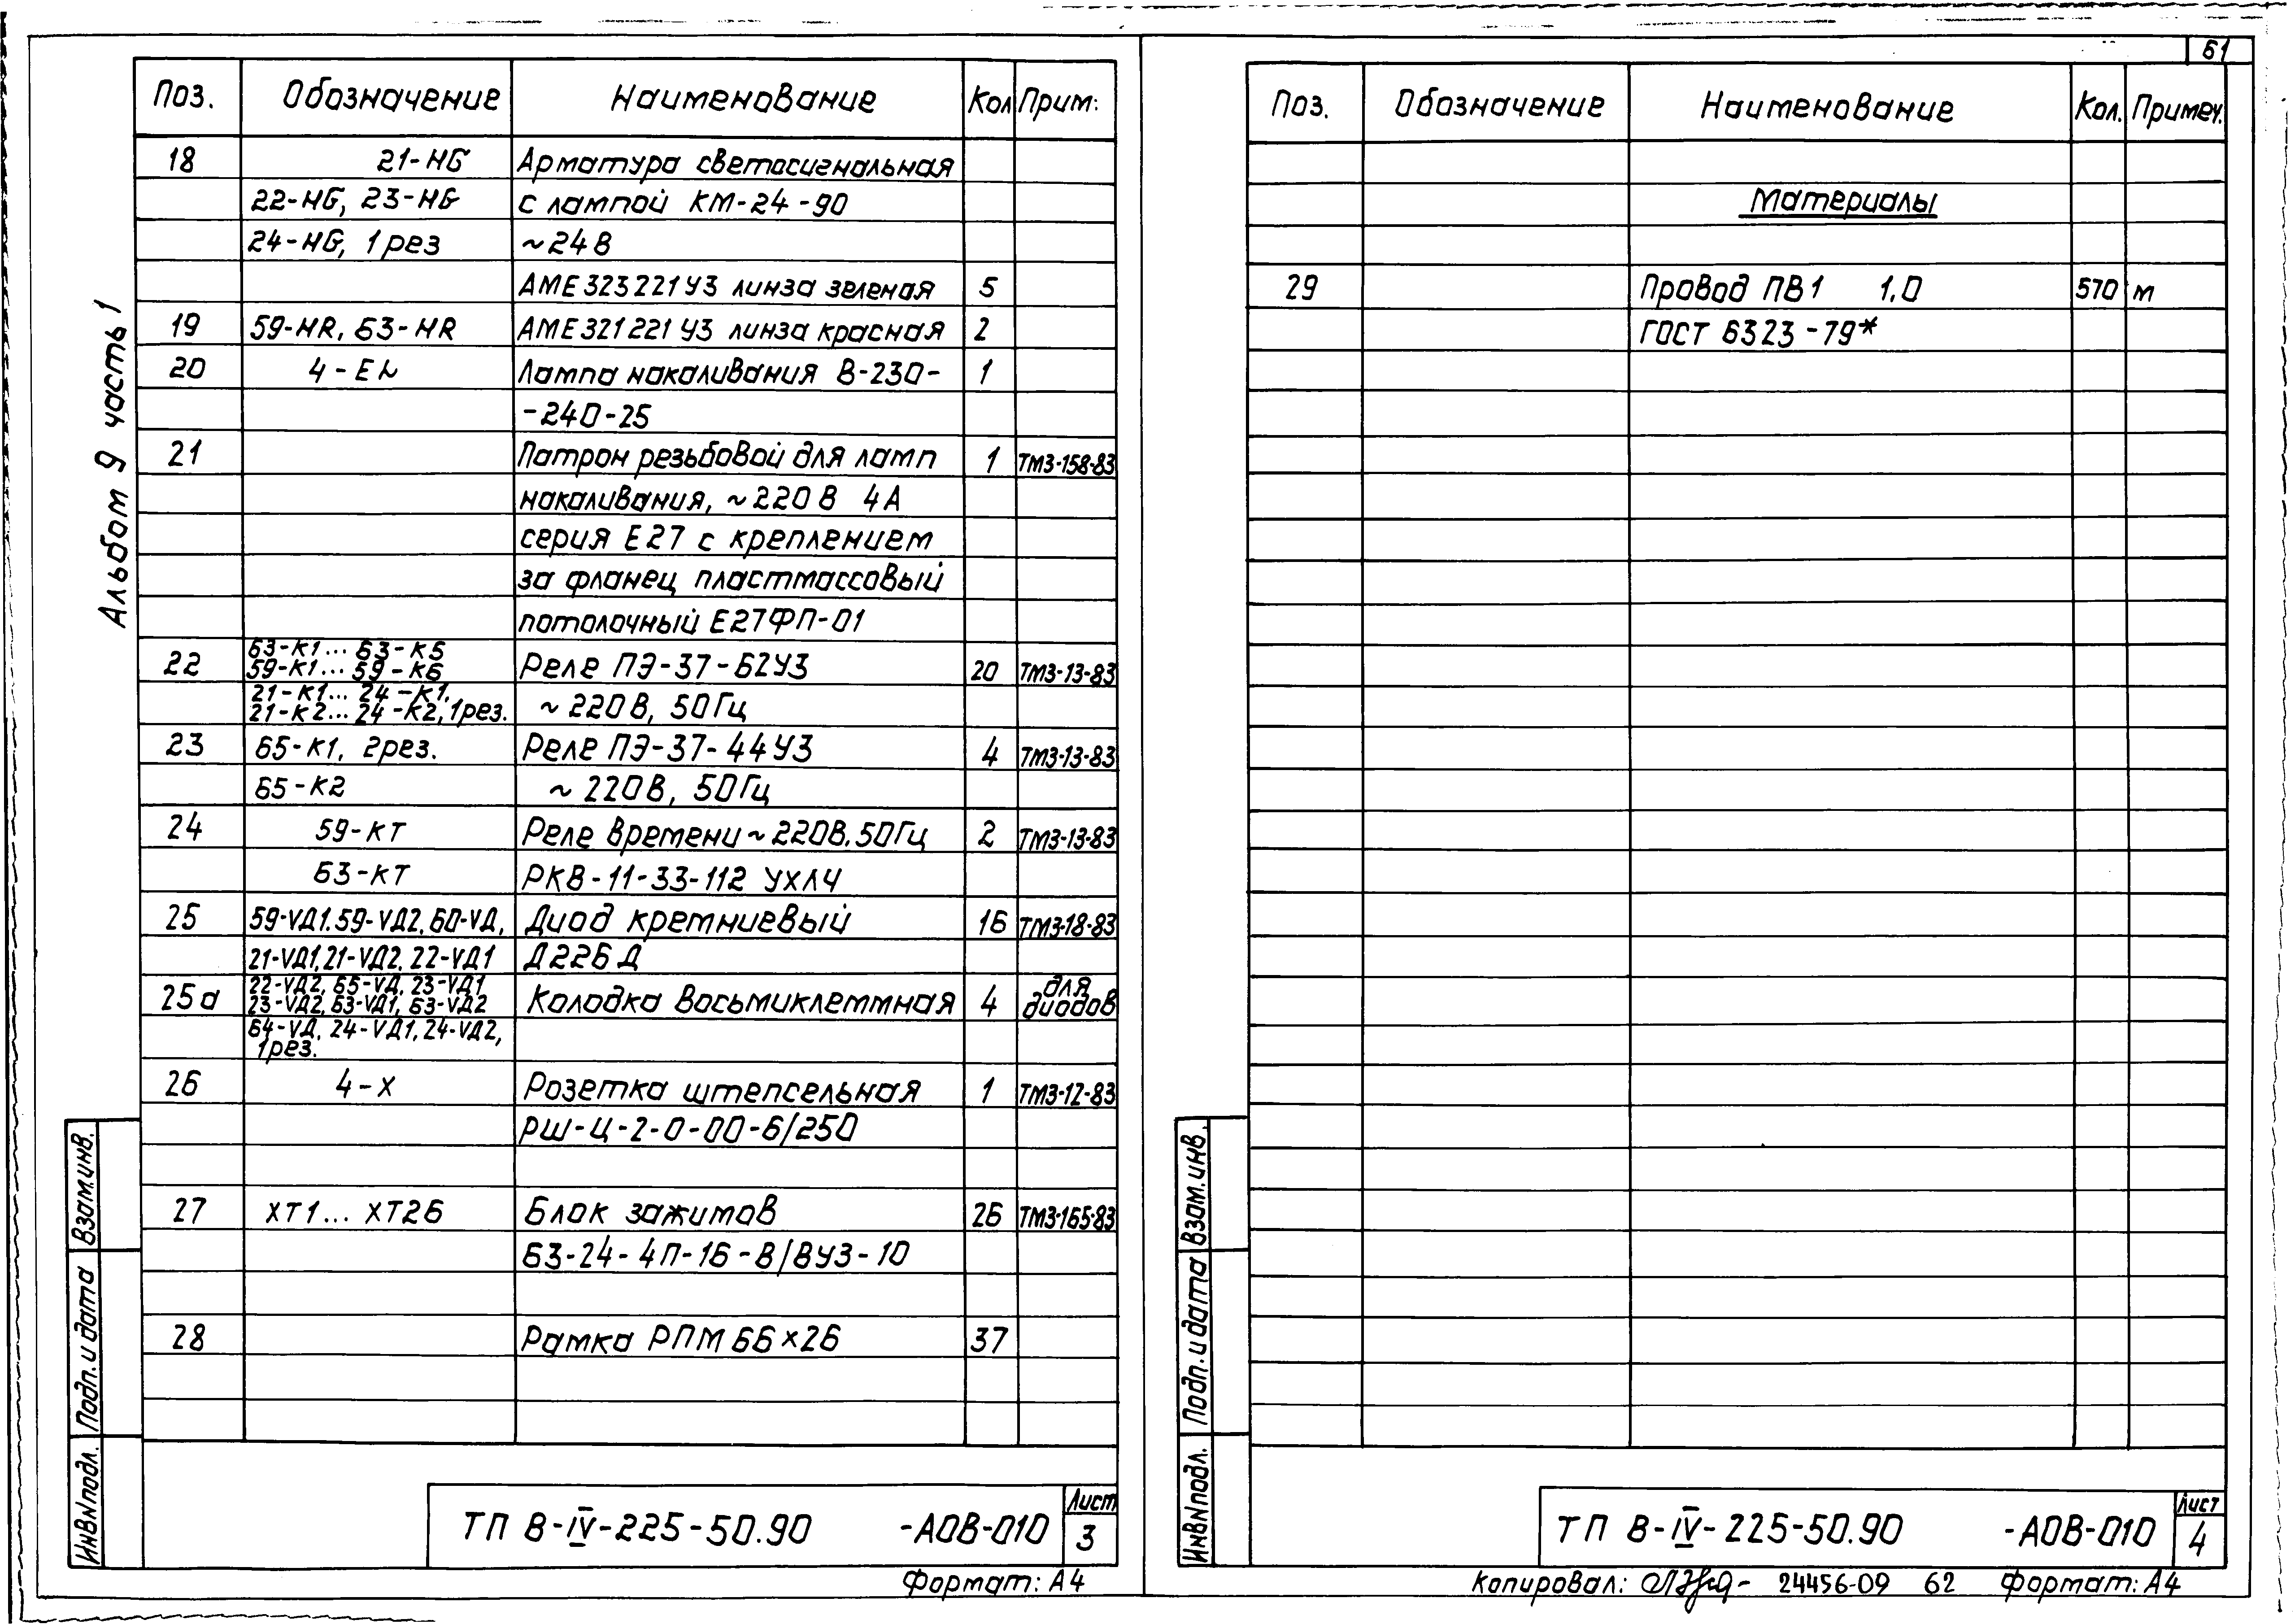 Альбом 9 часть 1
Поз. Обозначение Наименование Кол Прим:
18 21-HG Арматура светосигнальная
22-HG, 23-HG с лампой КМ-24-90
24-HG, 1 рез ~24В
АМЕ323221У3 линза зеленая 5
19 59-HR, 63-HR АМЕ321221У3 линза красная 2
20 4-EL Лампа накаливания В-230- 1
-240-25
21 Патрон резьбовой для ламп 1 ТМ3-158-83
накаливания, ~220В 4А
серия Е27 с креплением
за фланец пластмассовый
потолочный Е27ФП-01
22 63-К1... 63-К5
59-К1... 59-К6 Реле ПЭ-37-62У3 20 ТМ3-13-83
21-К1... 24-К1,
21-К2... 24-К2, 1рез. ~220В, 50Гц
23 65-К1, 2рез. Реле ПЭ-37-44У3 4 ТМ3-13-83
65-К2 ~220В, 50Гц
24 59-КТ Реле времени ~220В.50Гц 2 ТМ3-13-83
63-КТ РКВ-11-33-112 УХЛ4
25 59-VД1.59-VД2, 60-VД, Диод кремниевый 16 ТМ3-18-83
21-VД1, 21-VД2, 22-VД1 Д226Д
25а 22-VД2, 65-VД, 23-VД1
23-VД2, 63-VД1, 63-VД2 Колодка восьмиклеммная 4 для диодов
64-VД, 24-VД1, 24-VД2,
1рез.
26 4-Х Розетка штепсельная 1 ТМ3-12-83
РШ-Ц-2-0-00-6/250
27 ХТ1... ХТ26 Блок зажимов 26 ТМ3-165-83
Б3-24-4П-16-В/ВУ3-10
28 Рамка РПМ 66х26 37
Взам.инв.
Подп. и дата
Инв№подл.
ТП В-IV-225-50.90 -АОВ-010 Лист 3
Формат: А4
61
Поз. Обозначение Наименование Кол. Примеч.
Материалы
29 Провод ПВ1 1,0 570 м
ГОСТ 6323-79*
Взам.инв.
Подп. и дата
Инв№подл.
ТП В-IV-225-50.90 -АОВ-010 Лист 4
Копировал: 24456-09 62 Формат: А4